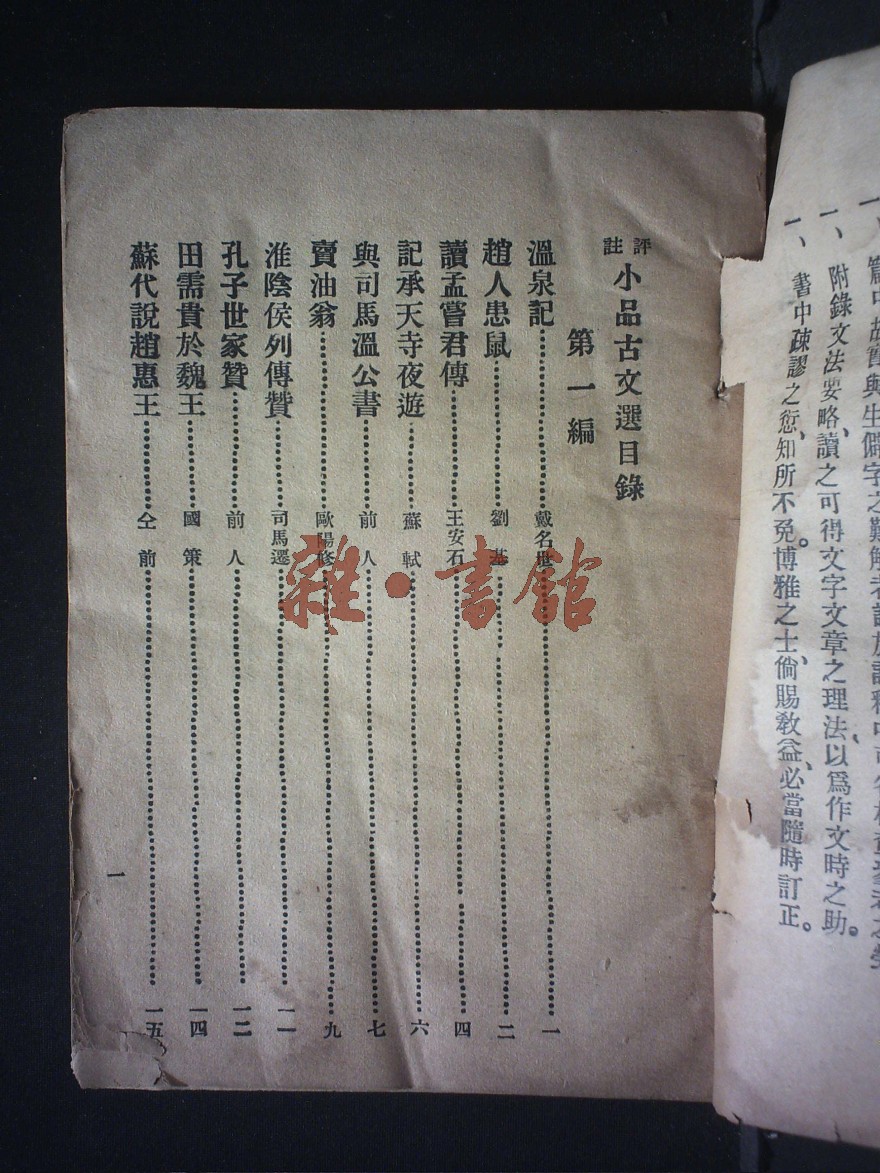 一、篇中故實與生僻字之難解者註於註釋中
一、附錄文法要略、讀之可得文字文章之理法、以爲作文時之助。
一、書中疎謬之愆、知所不免。博雅之士、倘賜敎益、必當隨時訂正。
評註小品古文選目錄
第一編
溫泉記……戴名世……一
趙人患鼠……劉基……二
讀孟嘗君傳……王安石……四
記承天寺夜遊……蘇軾……六
與司馬溫公書……前人……七
賣油翁……歐陽修……九
淮陰侯列傳贊……司馬遷……一一
孔子世家贊……前人……一二
田需貴於魏王……國策……一四
蘇代說趙惠王……仝前……一五
一
雜·書館